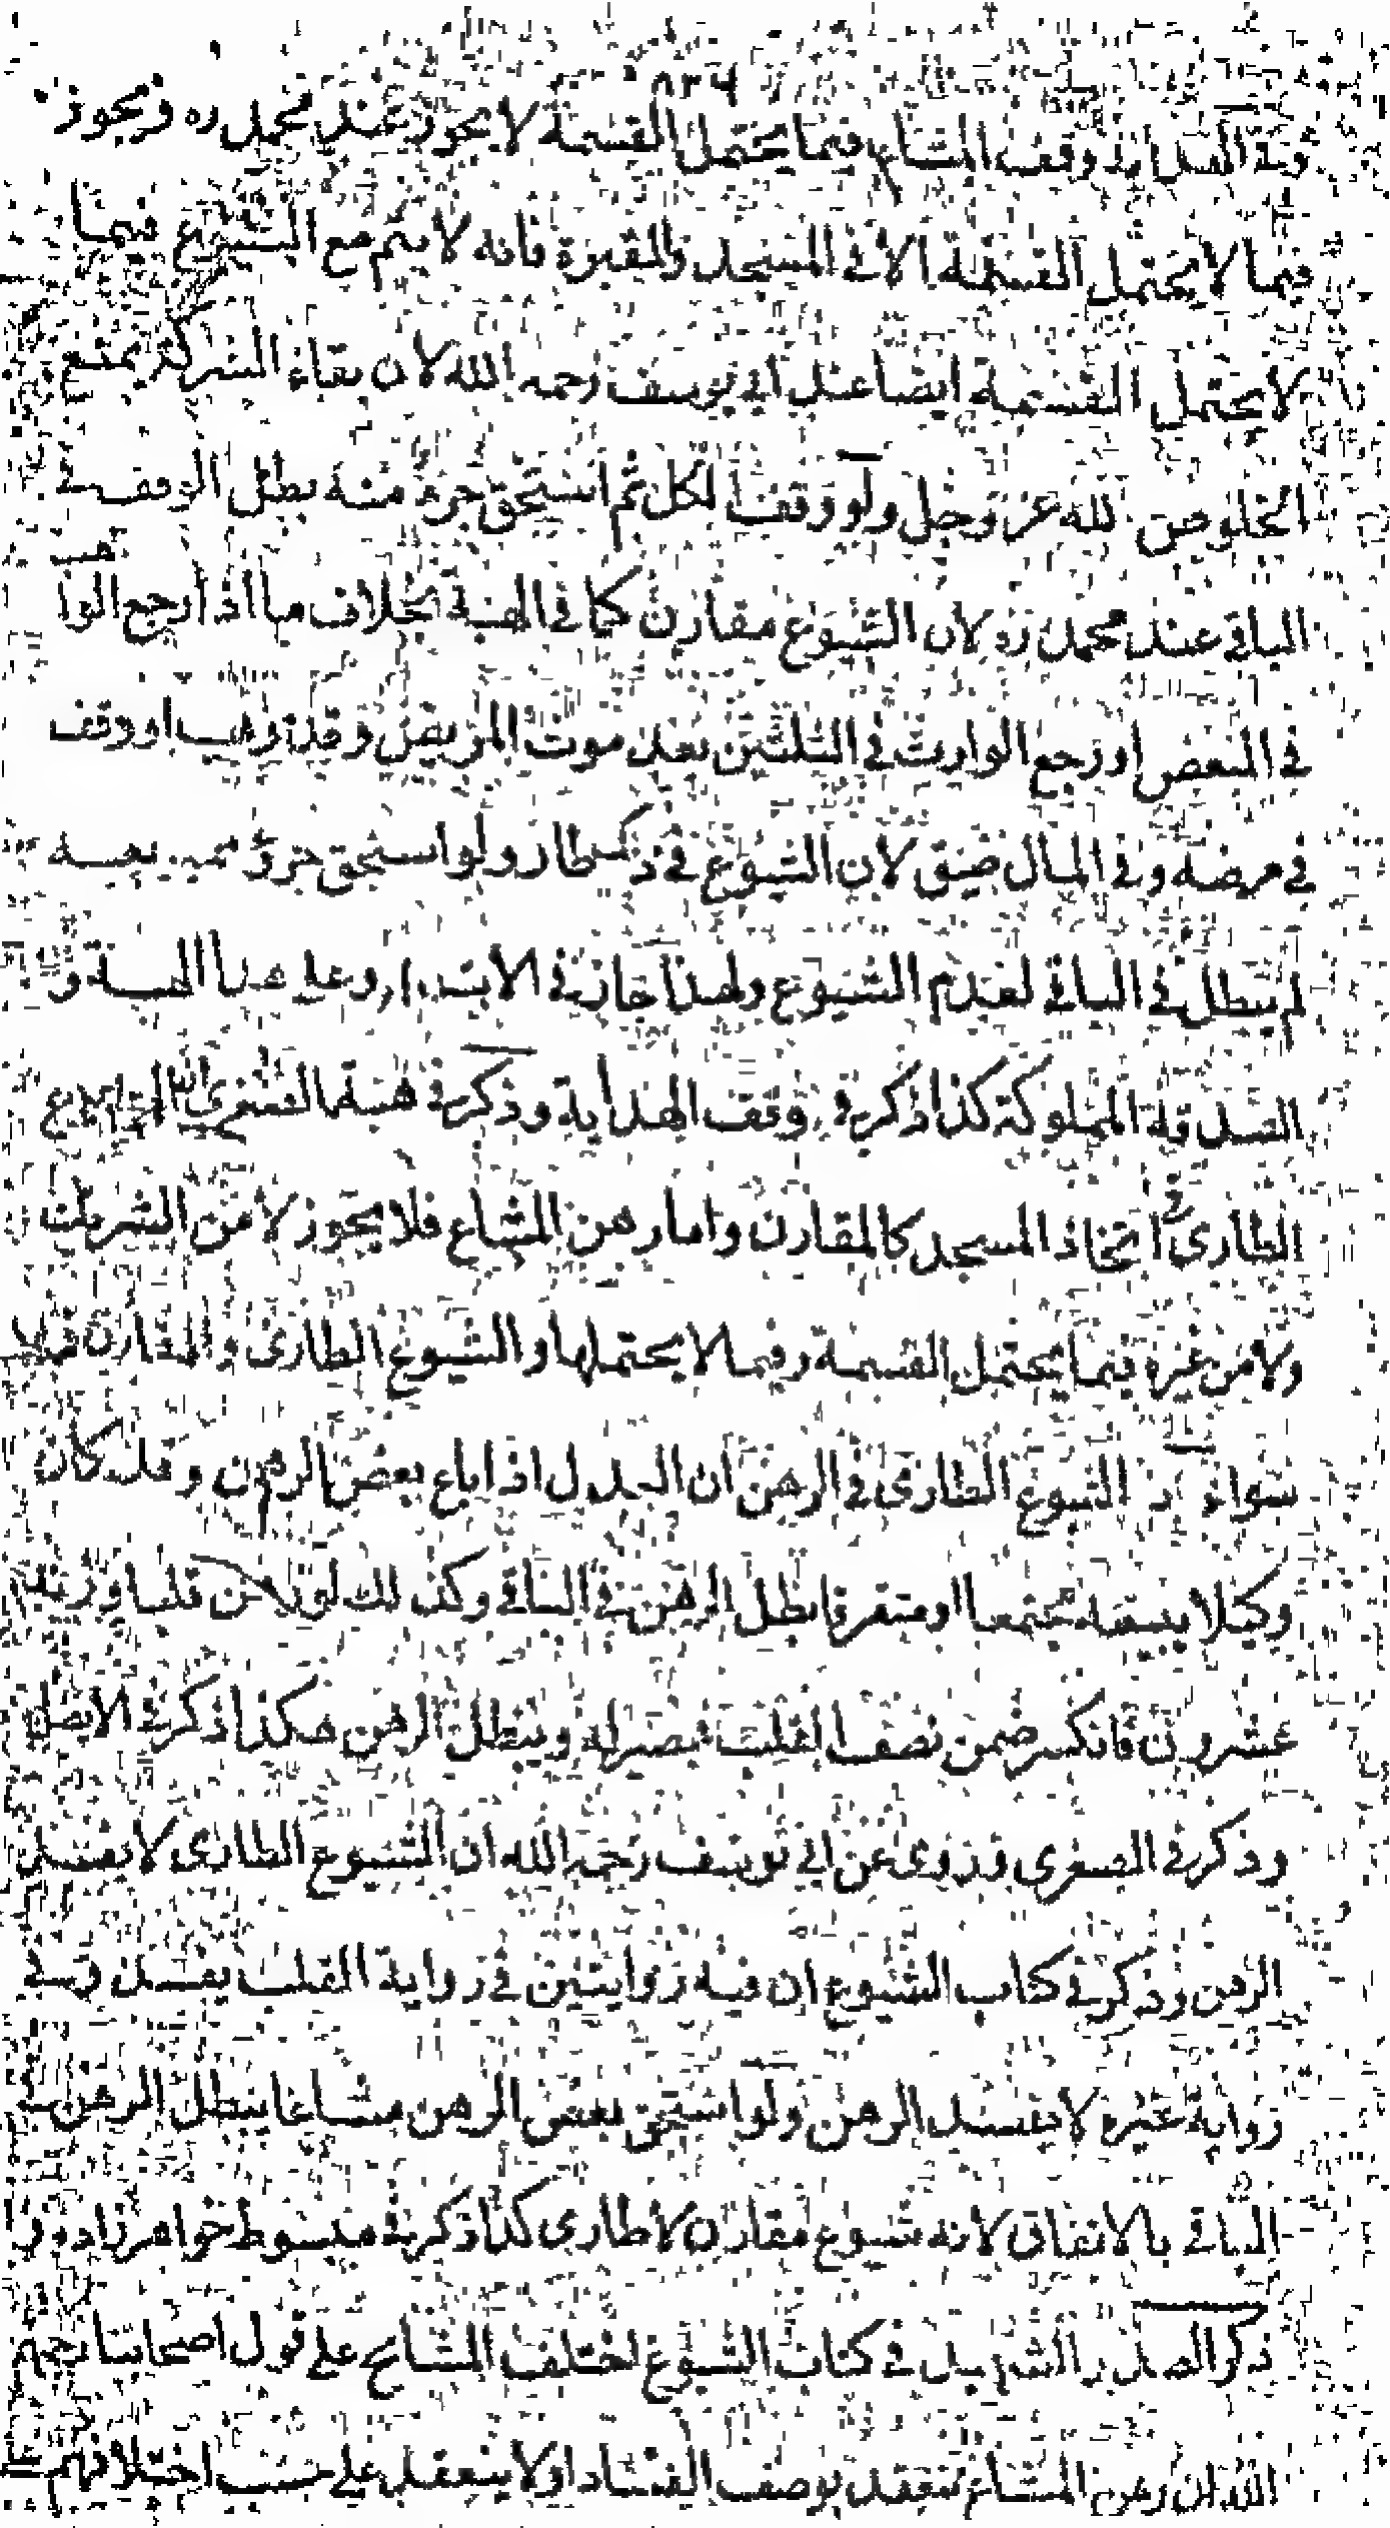 ٨٣٦
وفي الهداية وقف المشاع فيما يحتمل القسمة لا يجوز عند محمد ره ويجوز
فيما لا يحتمل القسمة الا في المسجد والمقبرة فانه لا يتم مع الشيوع فيما
لا يحتمل القسمة ايضا عند ابي يوسف رحمه الله لان بقاء الشركة يمنع
الخلوص لله عز وجل ولو وقف الكل ثم استحق جزء منه بطل الوقف في
الباقي عند محمد ره لان الشيوع مقارن كما في الهبة بخلاف ما اذا رجع الواهب
في البعض او رجع الوارث في الثلثين بعد موت المريض وقد وهب او وقف
في مرضه وفي المال ضيق لان الشيوع في ذلك طار ولو استحق جزؤ مميز بعينه
لم يبطل في الباقي لعدم الشيوع ولهذا جاز في الابتداء وعلى هذا الهبة و
الصدقة المملوكة كذا ذكر في وقف الهداية وذكر في هبة الصغرى الشيوع
الطارى في اتخاذ المسجد كالمقارن واما رهن المشاع فلا يجوز لا من الشريك
ولا من غيره فيما يحتمل القسمة وفيما لا يحتملها والشيوع الطارى والمقارن فيه
سواء الشيوع الطارى في الرهن ان العدل اذا باع بعض الرهن وقد كان
وكيلا ببيعه مجتمعا او متفرقا بطل الرهن في الباقي وكذلك لو رهن قلبا وزنه
عشرون فانكسر ضمن نصف القلب فيصير له ويبطل الرهن هكذا ذكر في الاصل
وذكر في الصغرى وروى عن ابي يوسف رحمه الله ان الشيوع الطارى لا يفسد
الرهن وذكر في كتاب الشيوع ان فيه روايتين في رواية القلب يفسد وفي
رواية غيره لا يفسد الرهن ولو استحق بعض الرهن مشاعا يبطل الرهن في
الباقي بالاتفاق لانه شيوع مقارن لا طارى كذا ذكر في مبسوط خواهرزاده ره
ذكر الصدر الشهيد في كتاب الشيوع اختلف المشايخ على قول اصحابنا رحمهم
الله ان رهن المشاع ينعقد بوصف الفساد او لا ينعقد على حسب اختلافهم في